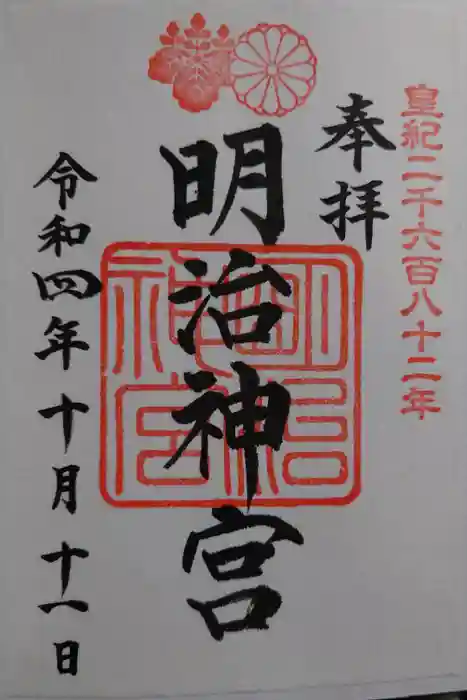 皇紀二千六百八十二年
奉拝
明治神宮
明治神宮
令和四年十月十一日